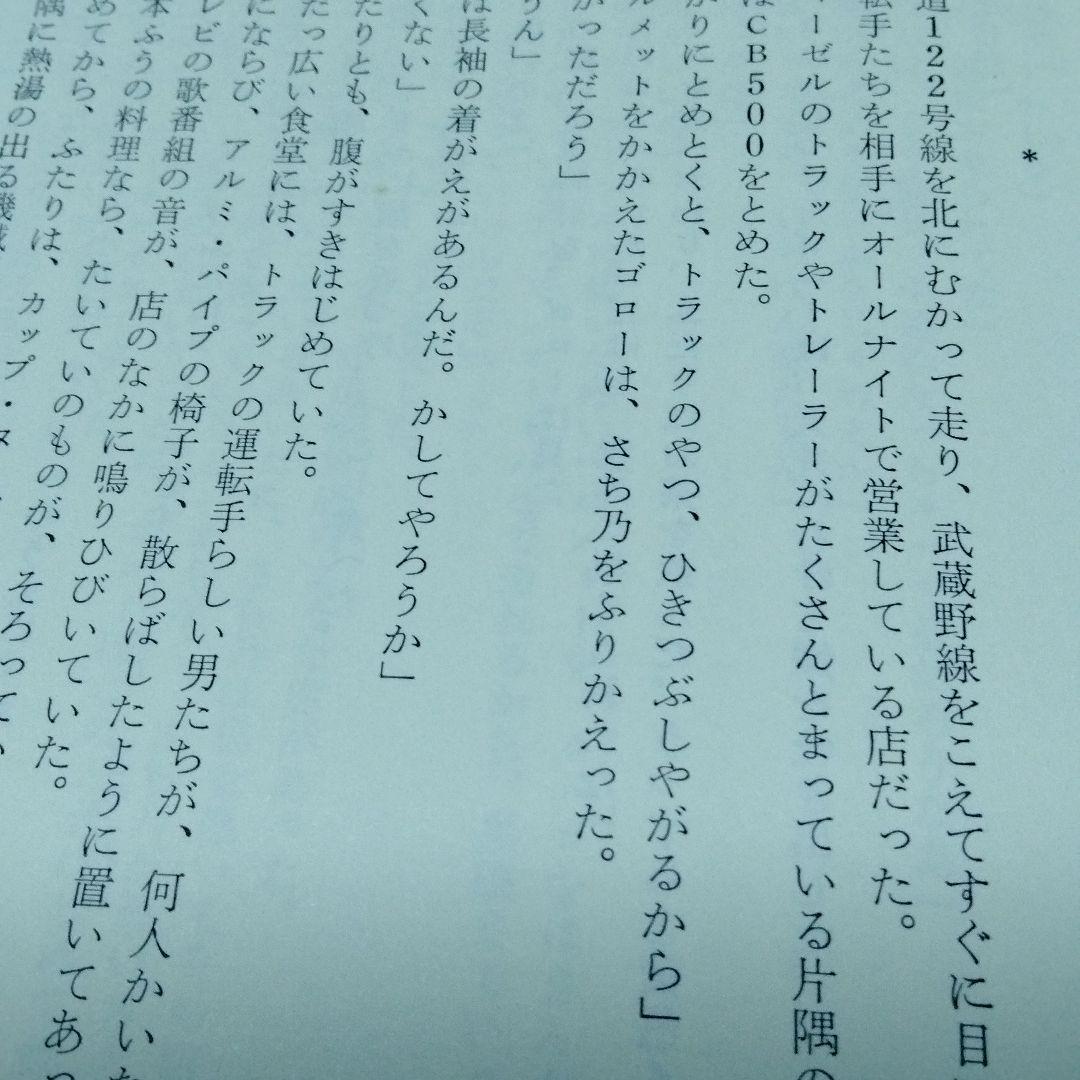 *
道122号線を北にむかって走り、武蔵野線をこえてすぐに目
転手たちを相手にオールナイトで営業している店だった。
ーゼルのトラックやトレーラーがたくさんとまっている片隅の
はCB500をとめた。
がりにとめとくと、トラックのやつ、ひきつぶしやがるから」
ルメットをかかえたゴローは、さち乃をふりかえった。
がっただろう」
うん」
は長袖の着がえがあるんだ。かしてやろうか」
くない」
たりとも、腹がすきはじめていた。
だっ広い食堂には、トラックの運転手らしい男たちが、何人かいた
にならび、アルミ・パイプの椅子が、散らばしたように置いてあっ
レビの歌番組の音が、店のなかに鳴りひびいていた。
本ふうの料理なら、たいていのものが、そろってい
めてから、ふたりは、カップ・ヌ
隅に熱湯の出る機械